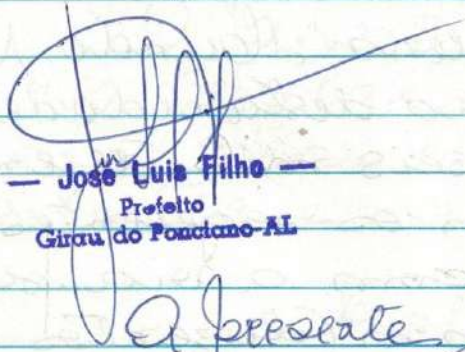 — José Luis Filho —
Prefeito
Girau do Ponciano-AL
A presente